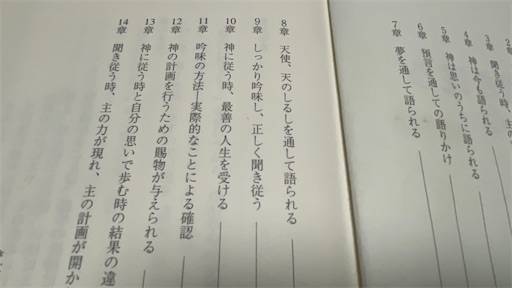 3章 聞き従う時、主
4章 神は今も語られる
5章 神は思いのうちに語られる
6章 預言を通しての語りかけ
7章 夢を通して語られる
8章 天使、天のしるしを通して語られる
9章 しっかり吟味し、正しく聞き従う
10章 神に従う時、最善の人生を受ける
11章 吟味の方法―実際的なことによる確認
12章 神の計画を行うための賜物が与えられる
13章 神に従う時と自分の思いで歩む時の結果の違
14章 聞き従う時、主の力が現れ、主の計画が開か